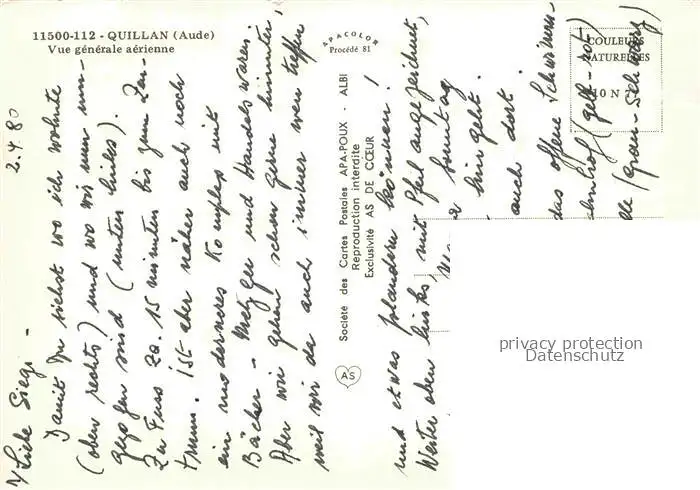 11500-112 - QUILLAN (Aude)
Vue générale aérienne
APACOLOR
Procédé 81
COULEURS
NATURELLES
10 N
2.4.80
Liebe Siegi -
Damit Du siehst wo ich wohnte
(oben rechts) und wo wir nun um-
gezogen sind (unten links).
Zu Fuss ca. 15 minuten bis zum Zen-
trum. Ist aber näher auch noch
ein moderneres Komplex mit
Bäcker - Metzger und Handelswaren.
Aber wir gehen schon gerne hinunter,
weil wir da auch immer wen treffen
und etwas plaudern können!
Weiter oben links, mit Pfeil angezeichnet,
Sonntag
hingeht.
auch dort.
das offene Schwimm-
(gelb-rot)
(grau-schwarz)
Société des Cartes Postales APA-POUX - ALBI
Reproduction interdite
Exclusivité AS DE CŒUR
AS
privacy protection
Datenschutz